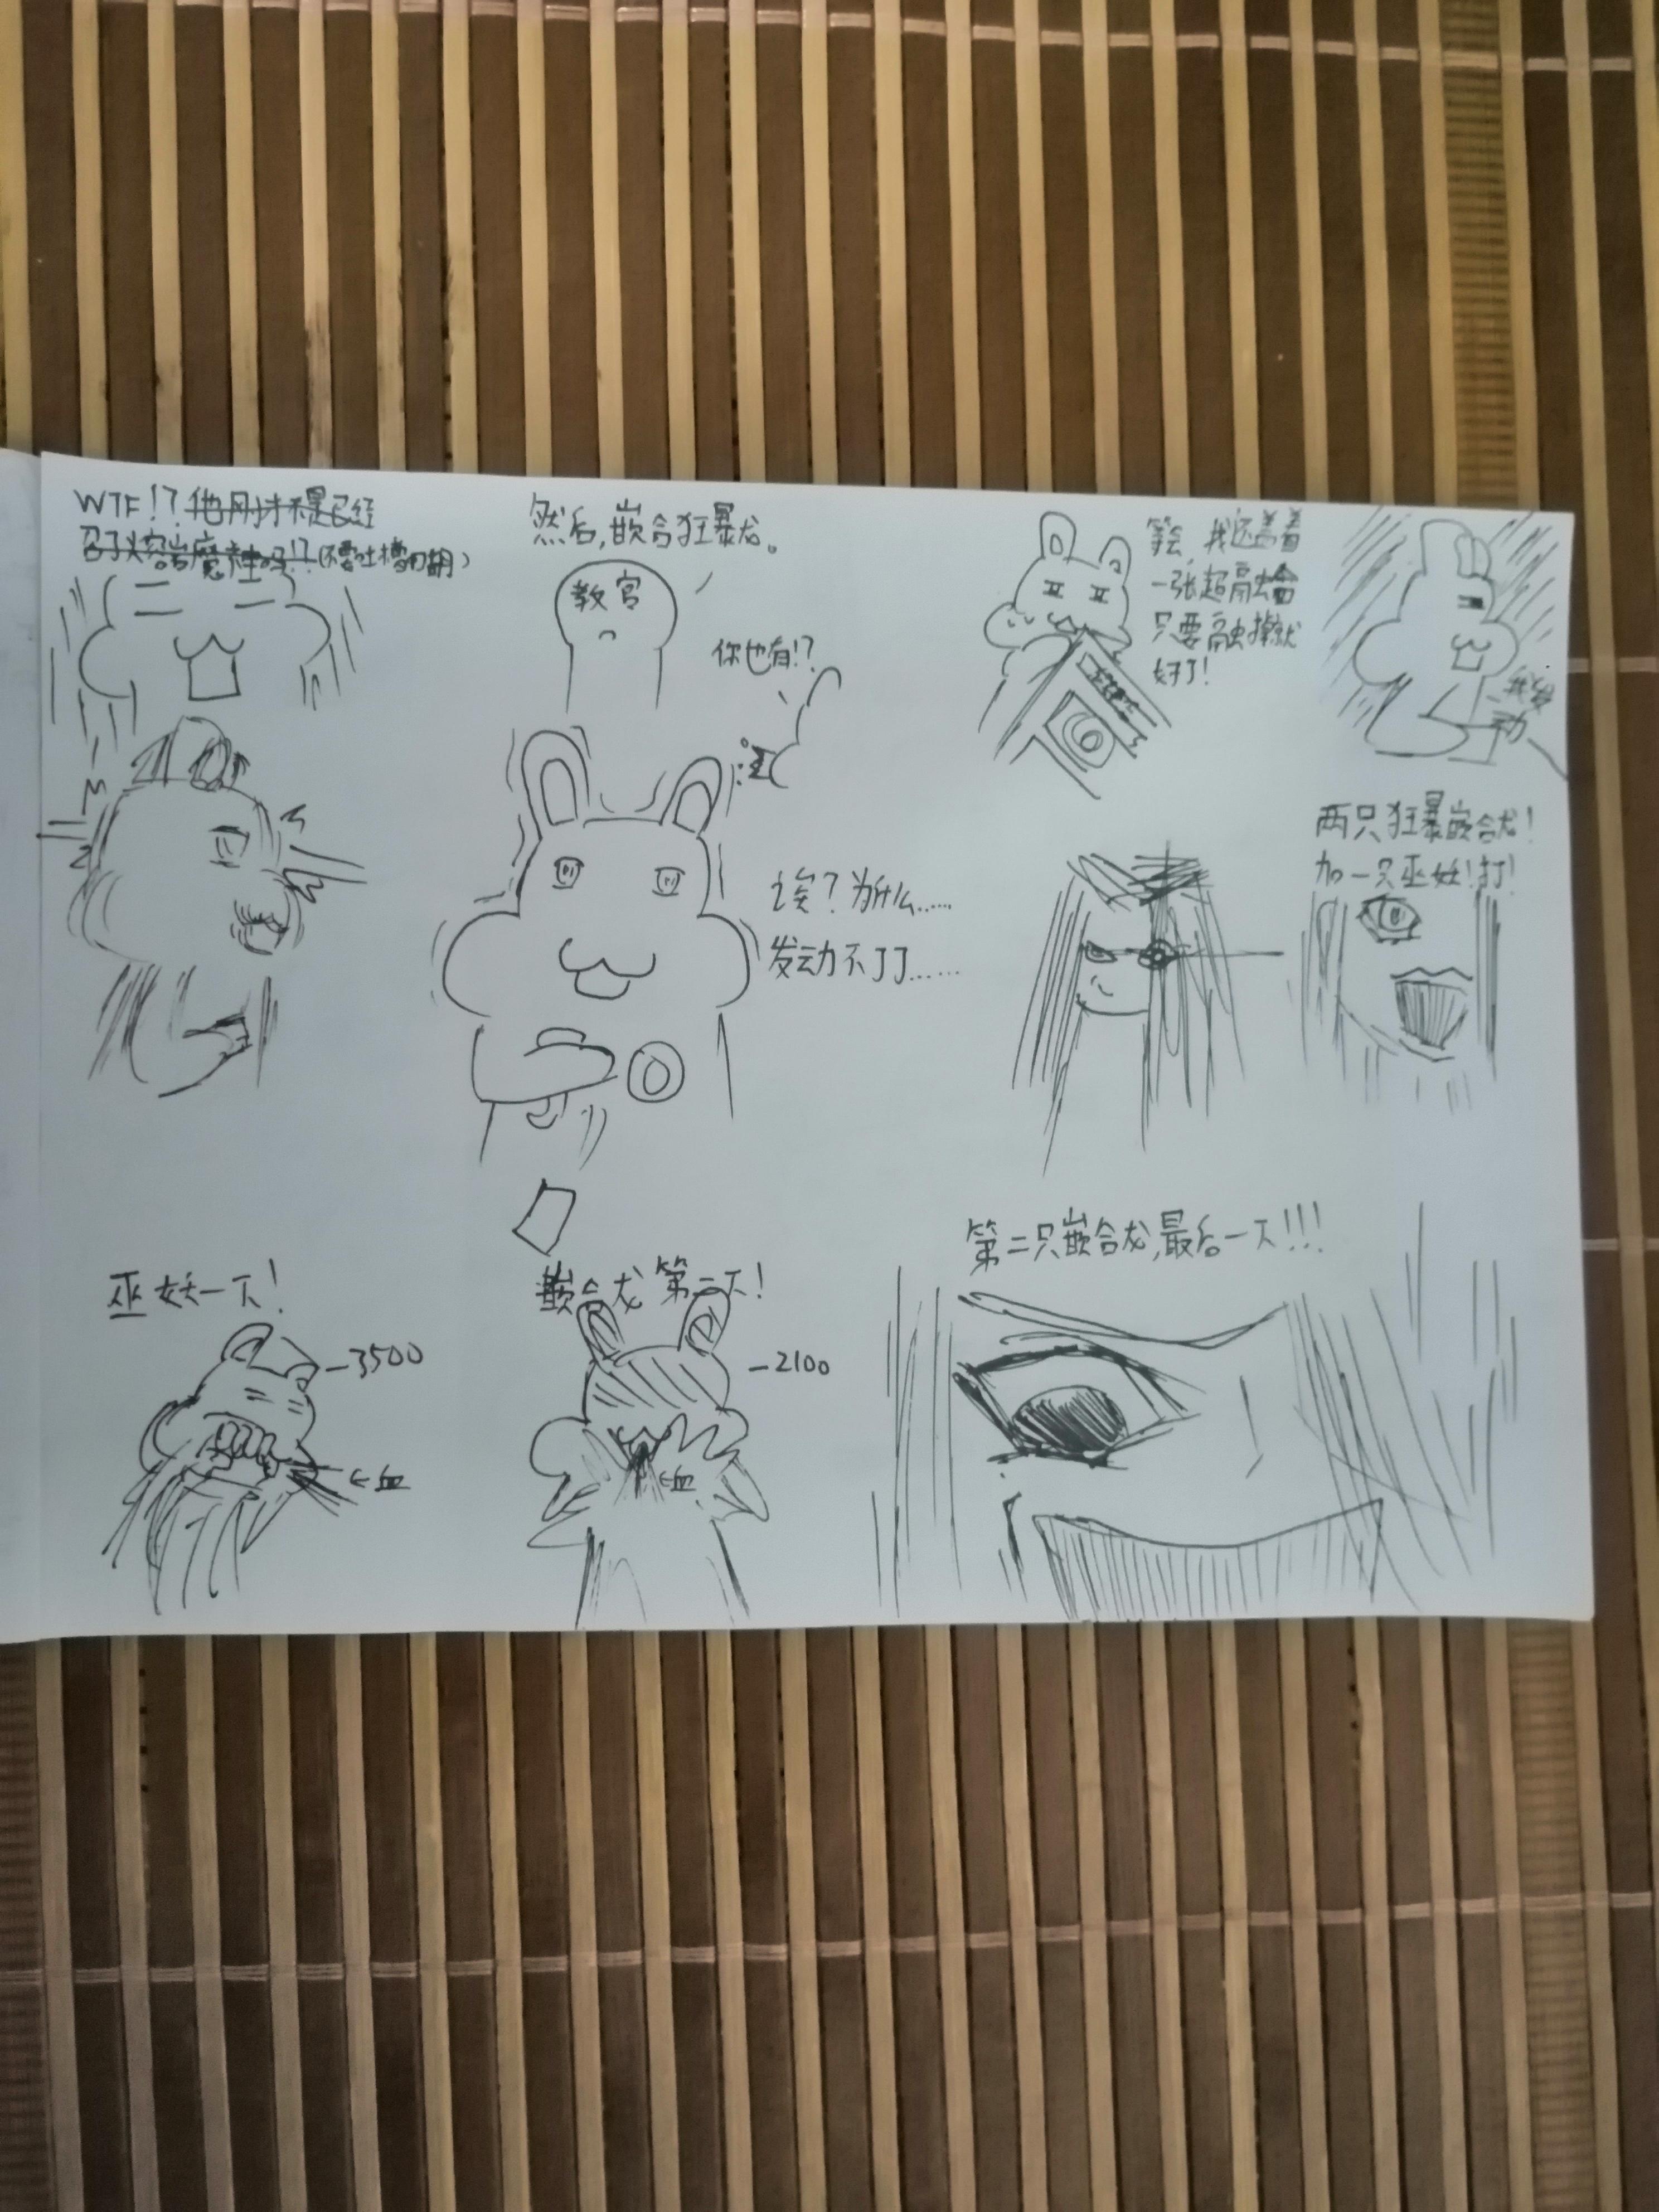 WTF!?他刚才不是已经
召了熔岩魔神吗!?(不要吐槽
然后,嵌合狂暴龙。
教官
你也有!?
等会,我还盖着
一张超融合
只要融掉就
好了!
我发
动
诶?为什么……
发动不了了……
两只狂暴嵌合龙!
加一只巫妖!打!
巫妖一下!
-3500
←血
嵌合龙 第二下!
-2100
←血
第二只嵌合龙,最后一下!!!